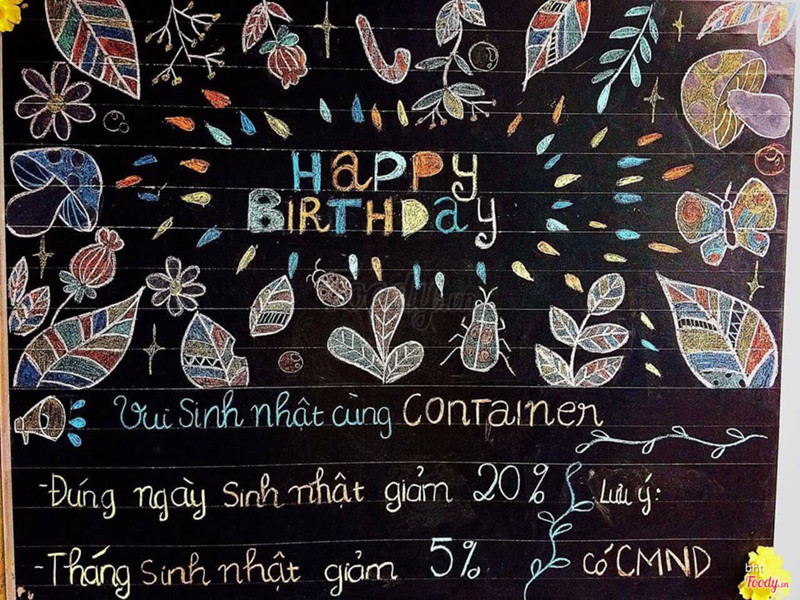 HAPPY
BIRTHDAY
Foody.vn
Vui sinh nhật cùng CONTAINER
-Đúng ngày sinh nhật giảm 20%
Lưu ý:
-Tháng sinh nhật giảm 5%
có CMND
Foody.vn